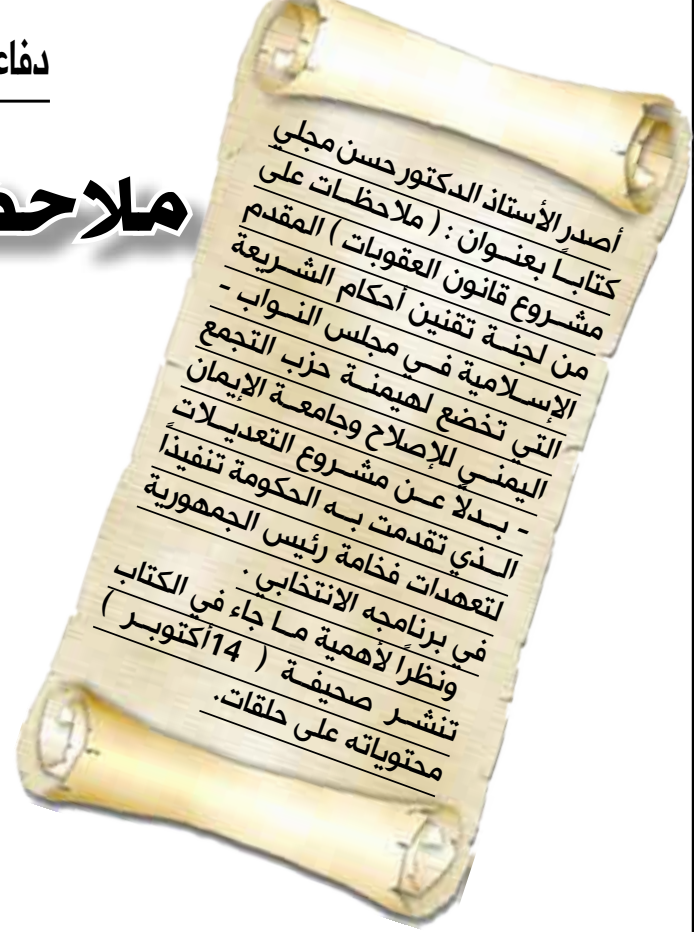 دفاع
ملاحظ
أصدر الأستاذ الدكتور حسن مجلي
كتاباً بعنـوان : ( ملاحظـات على
مشـروع قانون العقوبات ) المقدم
من لجنـة تقنين أحكام الشـريعة
الإسـلامية فـي مجلس النـواب -
التي تخضع لهيمنـة حزب التجمع
اليمنـي للإصلاح وجامعـة الإيمان
- بـدلاً عـن مشـروع التعديـلات
الـذي تقدمت بـه الحكومة تنفيذاً
لتعهدات فخامة رئيس الجمهورية
في برنامجه الانتخابي .
ونظراً لأهمية مـا جاء في الكتاب
تنشـر صحيفـة ( 14أكتوبـر )
محتوياته على حلقات.